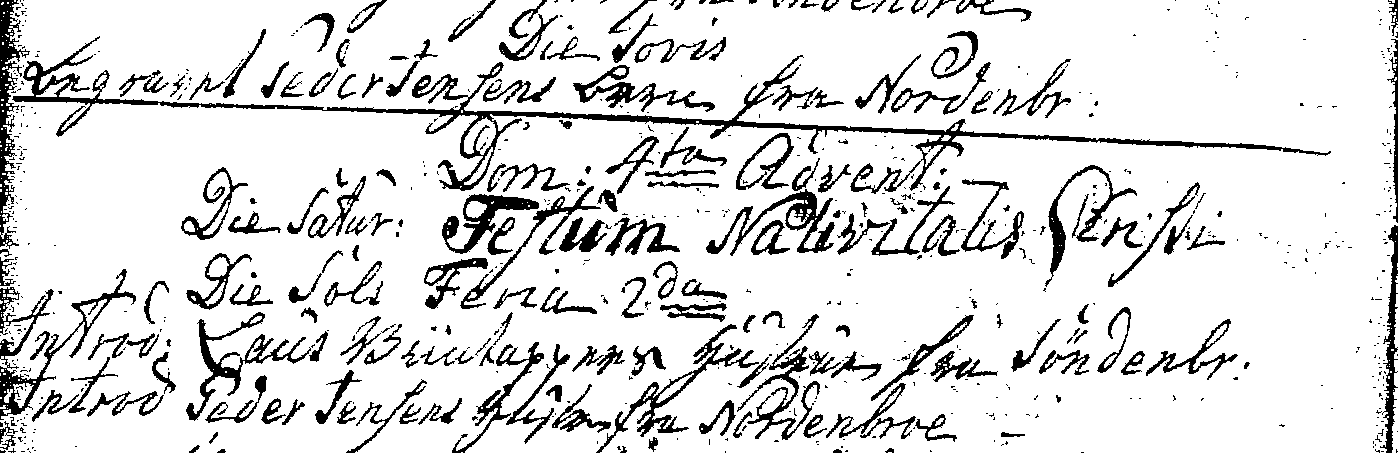 fra Söndenbroe
Die Jovis
Begravet Peder Jensens Barn fra Nordenbr:
Dom: 4ta Advent:
Die Satur: Festum Nativitatis Christi
Die Sols Feria 2da
Introd: Laus Hustrue fra Söndenbr.
Introd Peder Jensens Hustr. fra Nordenbroe